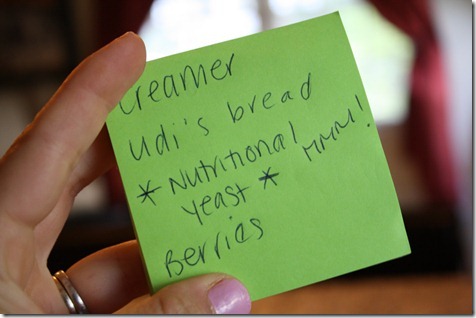 Creamer
Udi's bread
*Nutritional
Yeast* MMM!
Berries